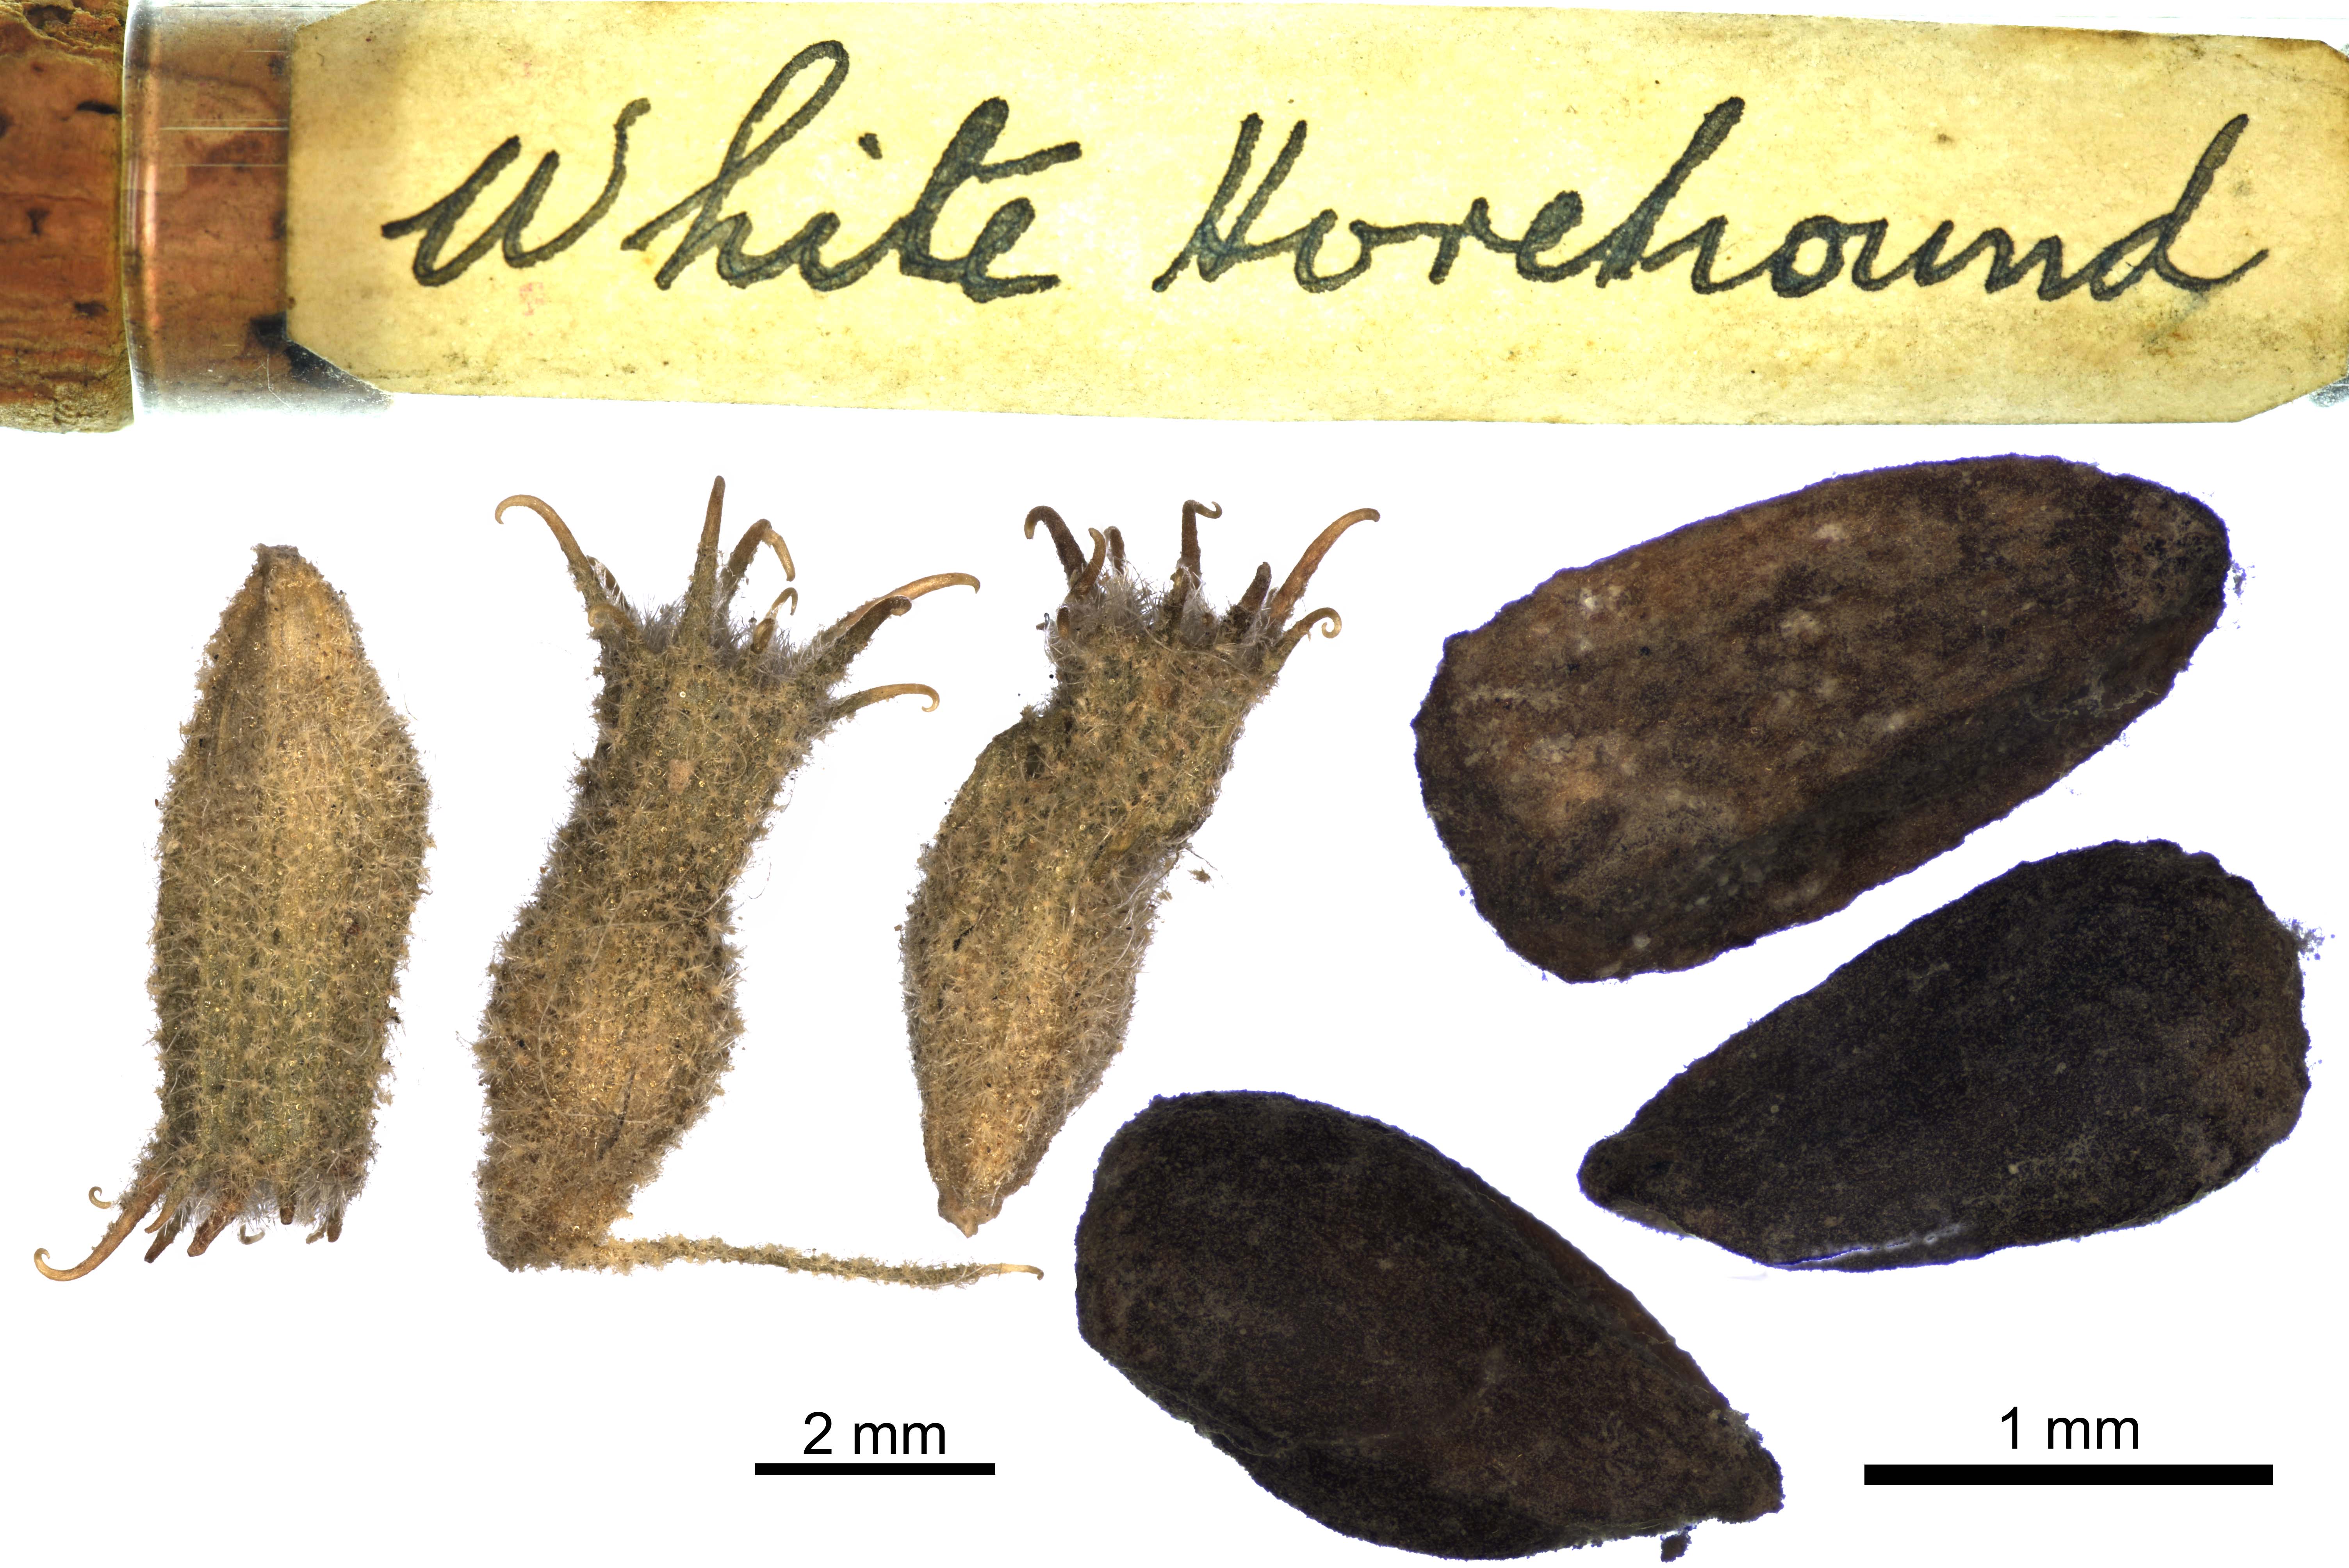 White Horehound
2 mm
1 mm